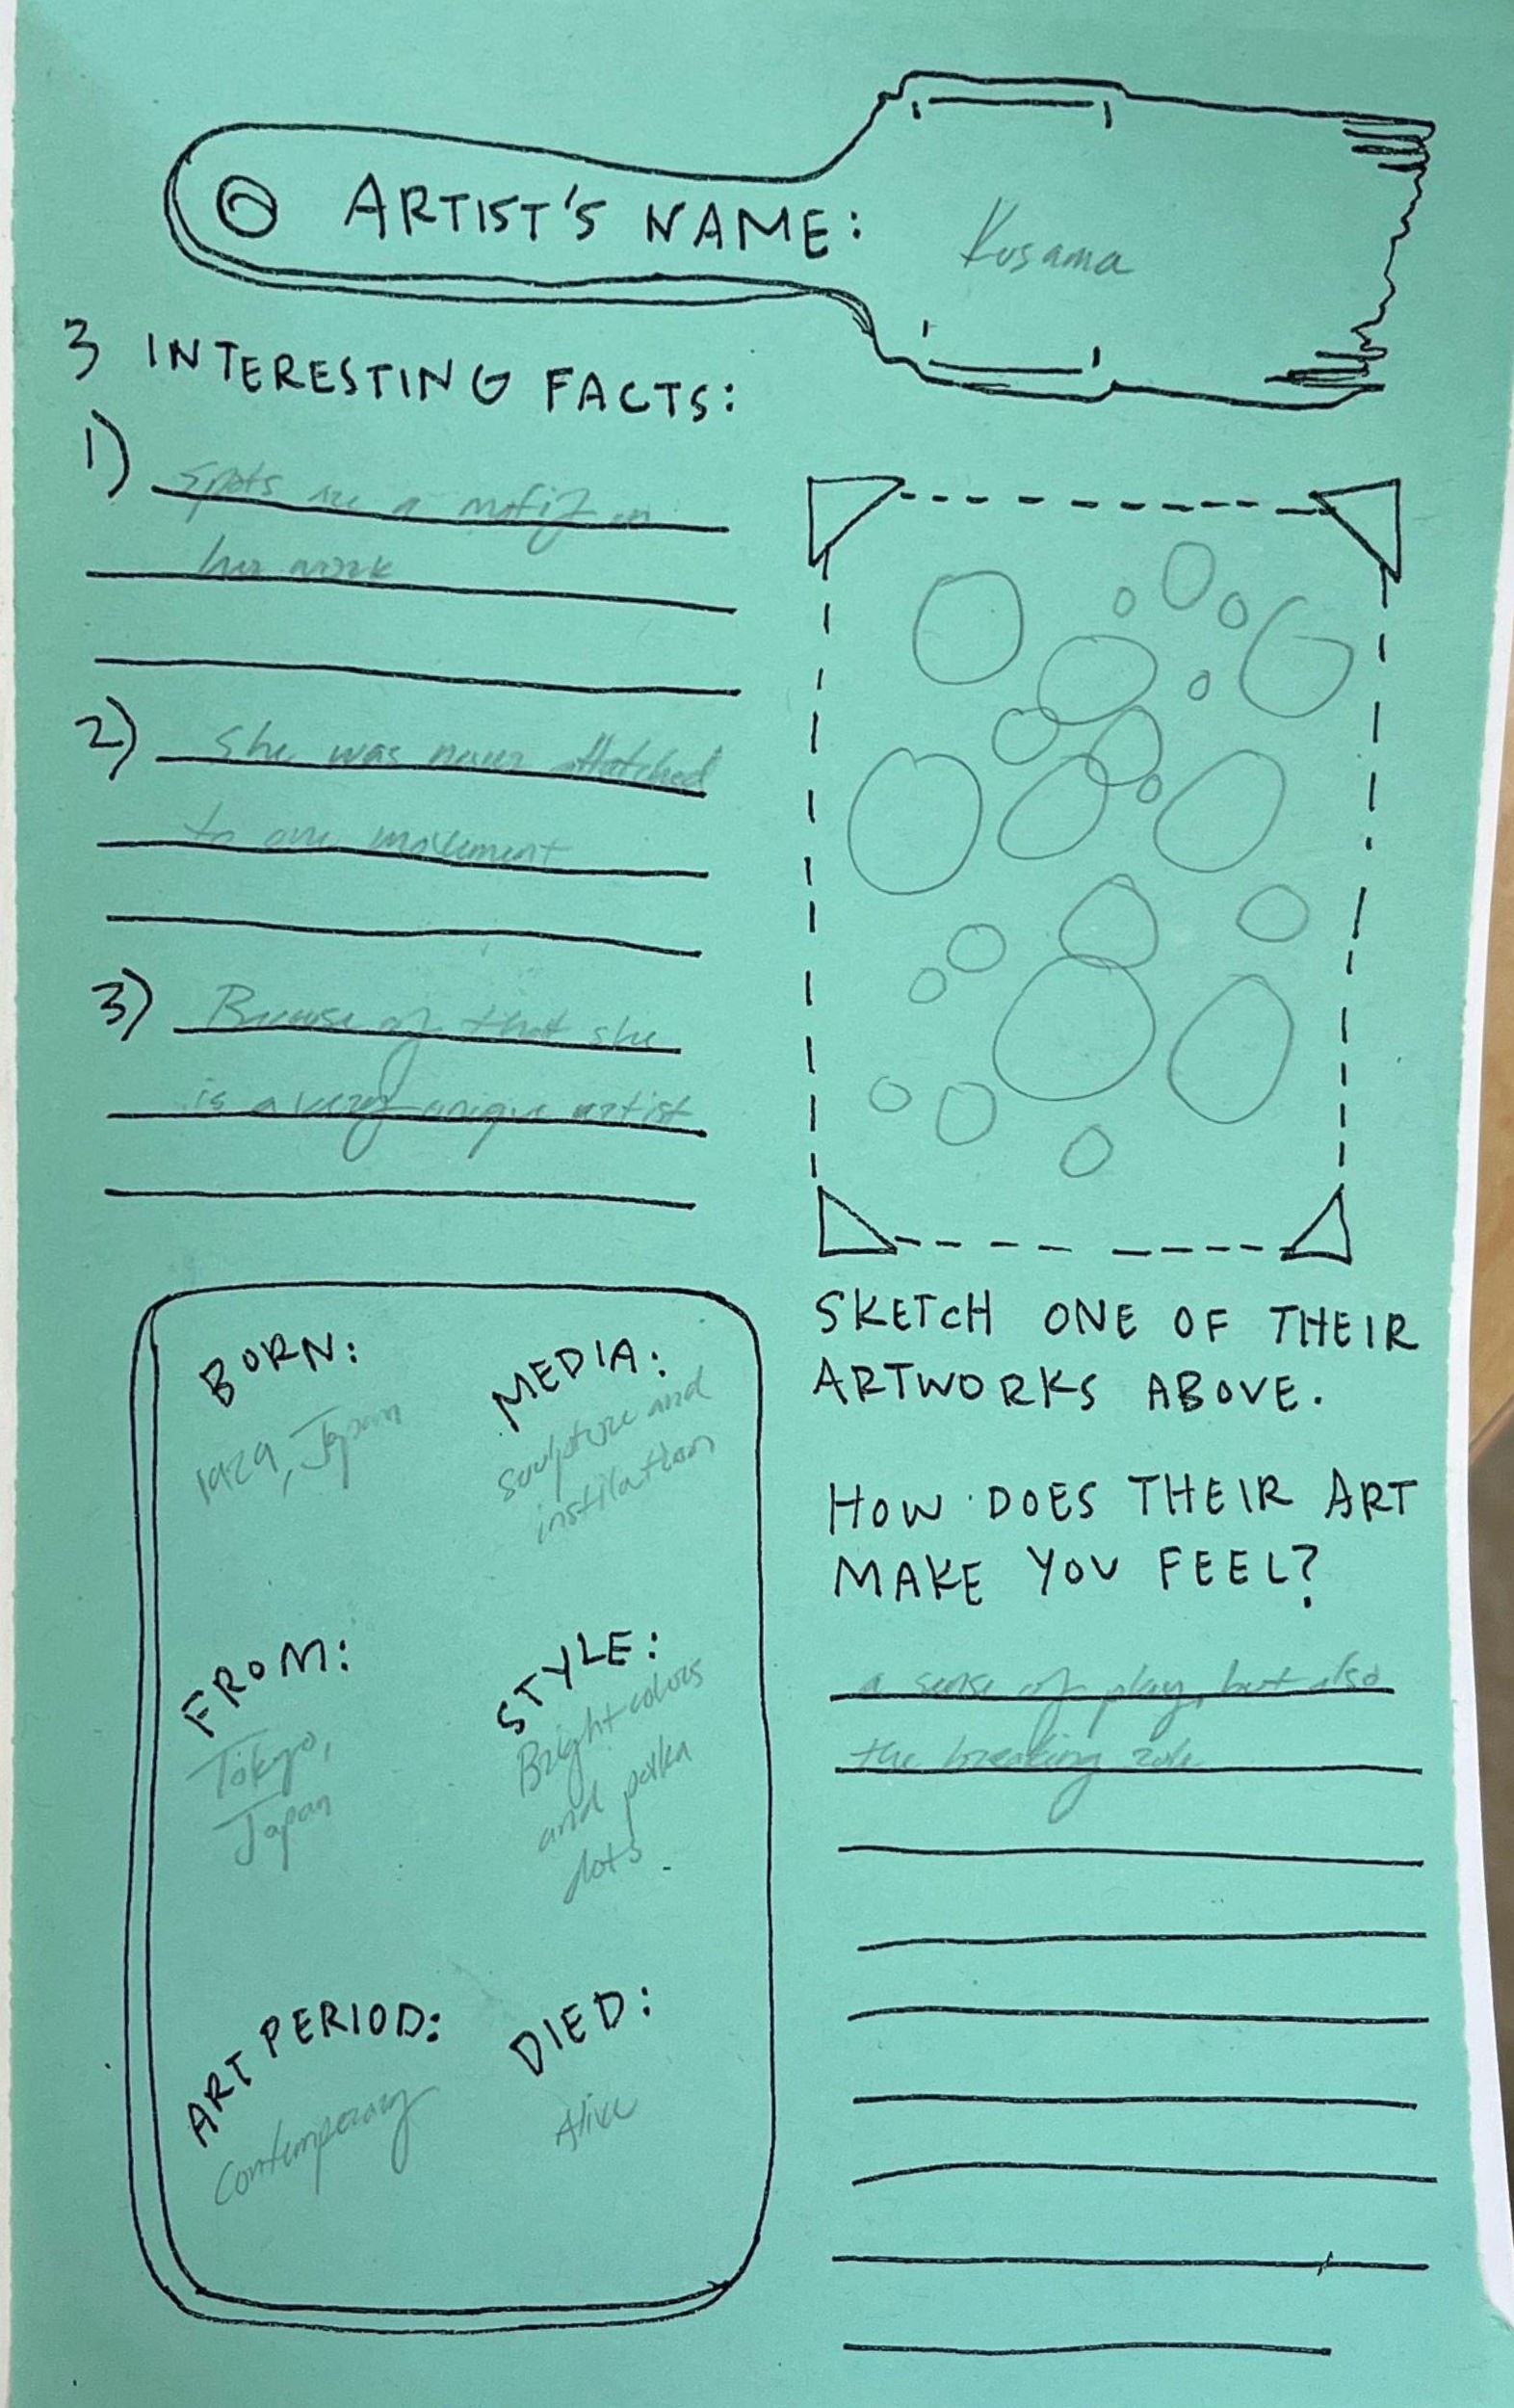 ARTIST'S NAME: Kusama
3 INTERESTING FACTS:
1) Spots are a motif in
her work
2) She was never attatched
to one movement
3) Because of that she
is a very unique artist
SKETCH ONE OF THEIR
ARTWORKS ABOVE.
BORN:
1929, Japan
MEDIA:
sculpture and
instilation
FROM:
Tokyo,
Japan
STYLE:
Bright colors
and polka
dots.
ART PERIOD:
Contemporary
DIED:
Alive
HOW DOES THEIR ART
MAKE YOU FEEL?
a sense of play, but also
the breaking